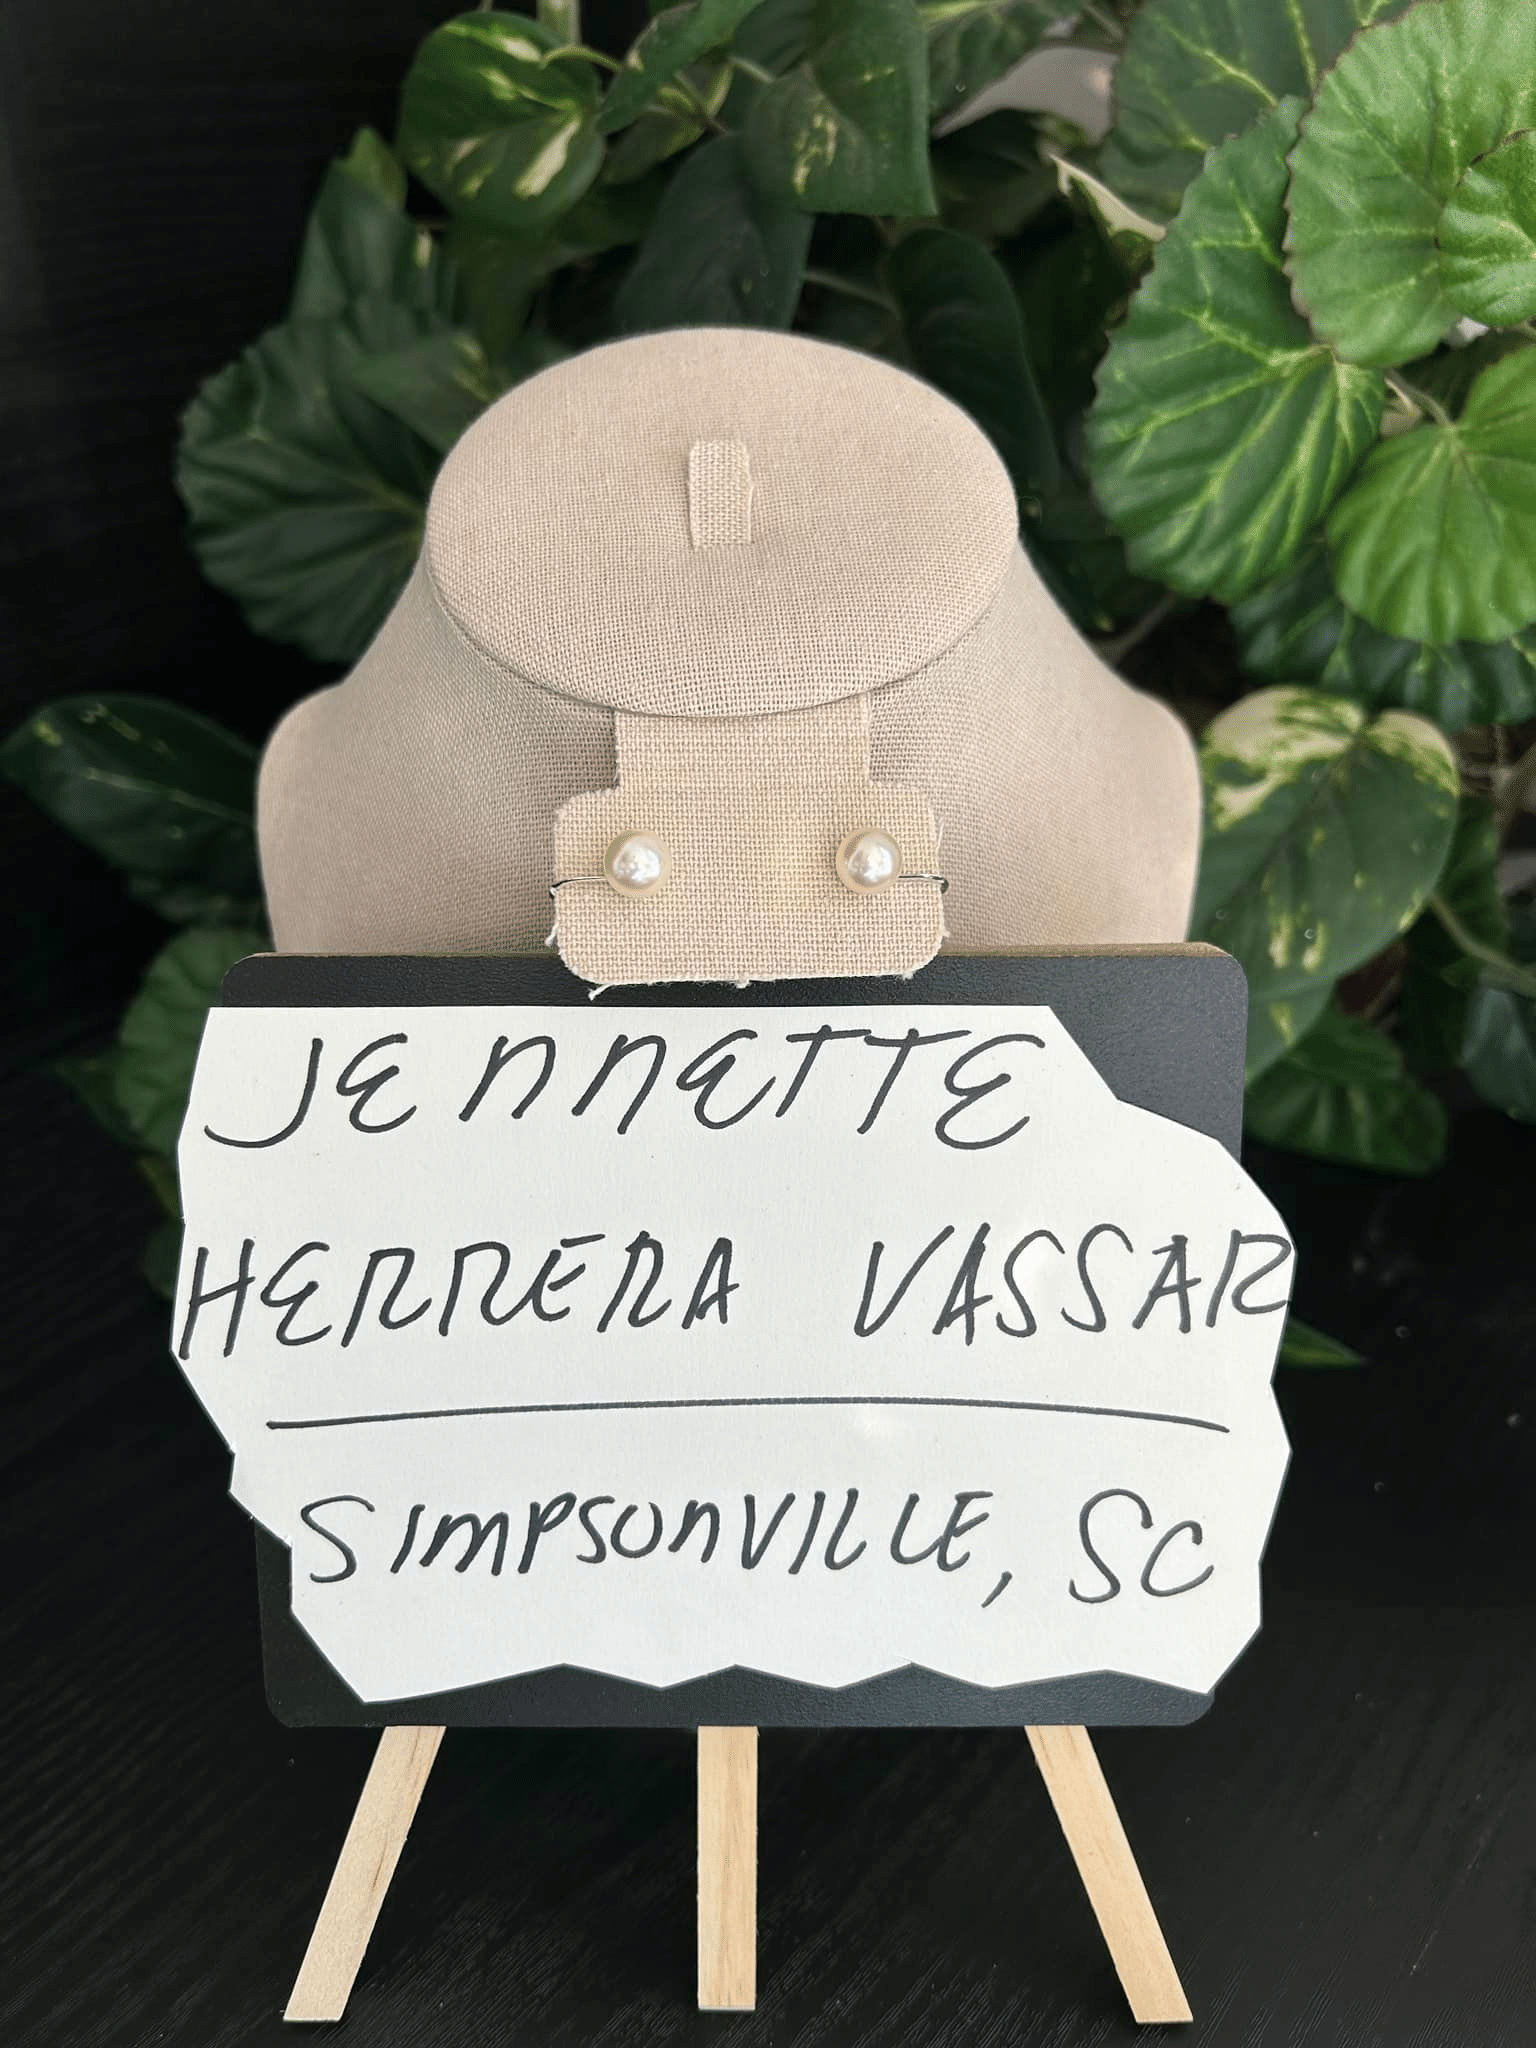 JENNETTE
HERRERA VASSAR
SIMPSONVILLE, SC